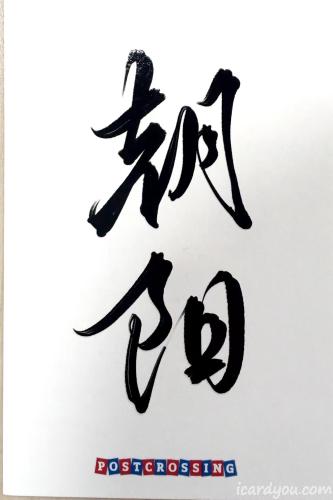 朝
阳
POSTCROSSING
icardyou.com